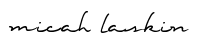 micah laskin